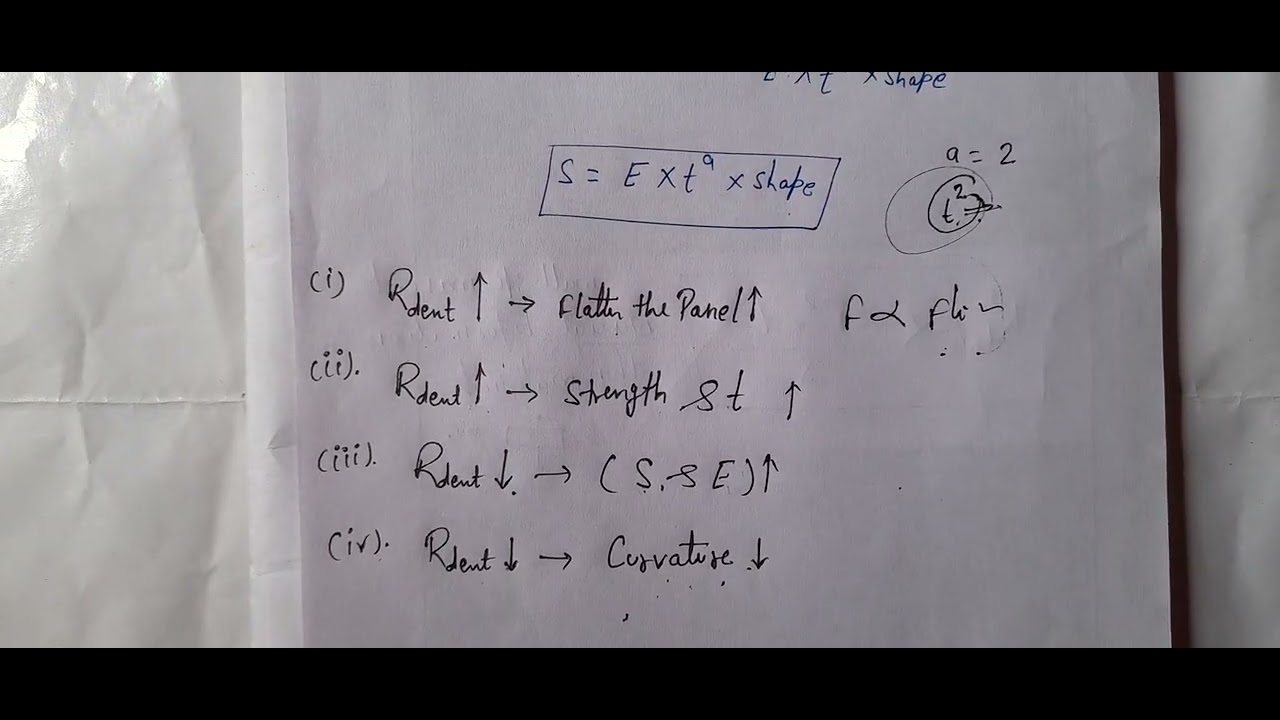 E × t × shape
a = 2
S = E × t^a × shape
t²
(i) Rdent ↑ → flatten the Panel ↑ F ∝
(ii). Rdent ↑ → Strength & t ↑
(iii). Rdent ↓ → (S. & E) ↑
(iv). Rdent ↓ → Curvature ↓